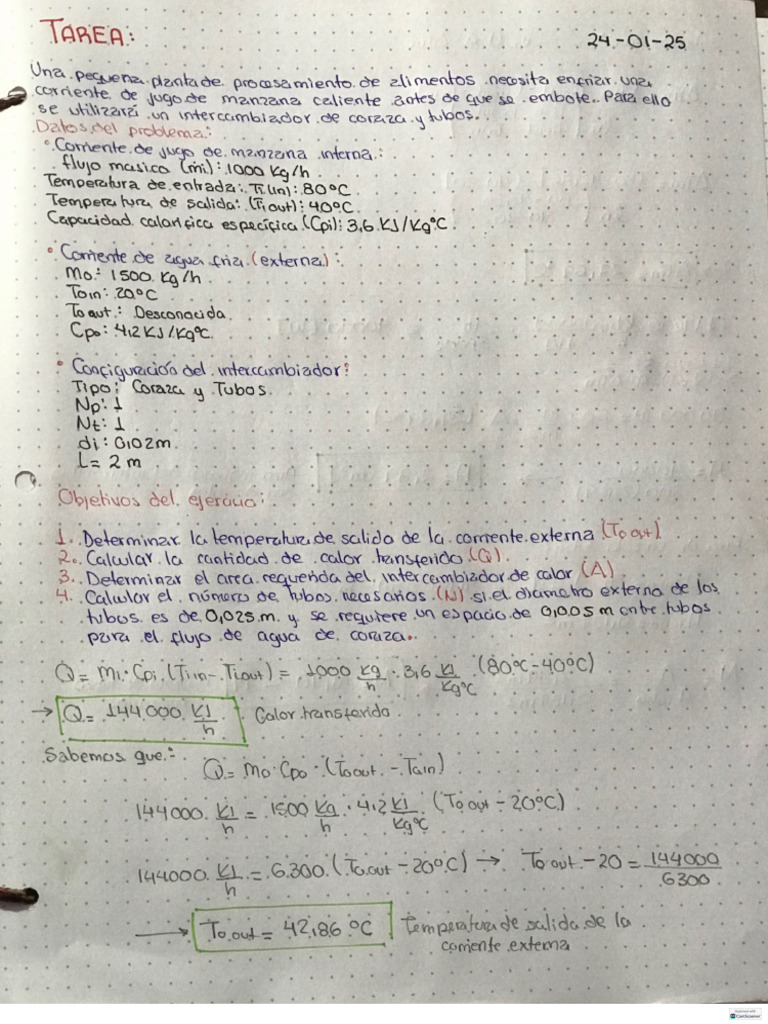 TAREA:
24-01-25
Una pequeña planta de procesamiento de alimentos necesita enfriar una
corriente de jugo de manzana caliente antes de que se embote. Para ello
se utilizará un intercambiador de coraza y tubos.
Datos del problema:
° Corriente de jugo de manzana interna:
flujo masico (mi): 1000 Kg/h
Temperatura de entrada: Ti(in): 80°C
Temperatura de salida: (Tiout): 40°C
Capacidad calorifica especifica (Cpi): 3,6 KJ/Kg°C
° Corriente de agua fria (externa):
Mo: 1500 Kg/h
Toin: 20°C
Toout: Desconocida
Cpo: 4,2 KJ/Kg°C
° Configuración del intercambiador:
Tipo: Coraza y Tubos
Np: 1
Nt: 1
di: 0,02m
L= 2 m
Objetivos del ejercicio:
1. Determinar la temperatura de salida de la corriente externa (To out)
2. Calcular la cantidad de calor transferido (Q).
3. Determinar el area requerida del intercambiador de calor (A)
4. Calcular el número de tubos necesarios (N) si el diametro externo de los
tubos es de 0,025 m y se requiere un espacio de 0,005 m entre tubos
para el flujo de agua de coraza.
Q = mi. Cpi. (Tiin - Tiout) = 1000 Kg/h · 3,6 KJ/Kg°C · (80°C - 40°C)
→ Q = 144000 KJ/h Calor transferido
Sabemos que:
Q = mo · Cpo · (Toout - Toin)
144000 KJ/h = 1500 Kg/h · 4,2 KJ/Kg°C (To out - 20°C)
144000 KJ/h = 6.300 · (To.out - 20°C) → To out - 20 = 144000/6300
→ To.out = 42,86 °C Temperatura de salida de la
corriente externa
CamScanner